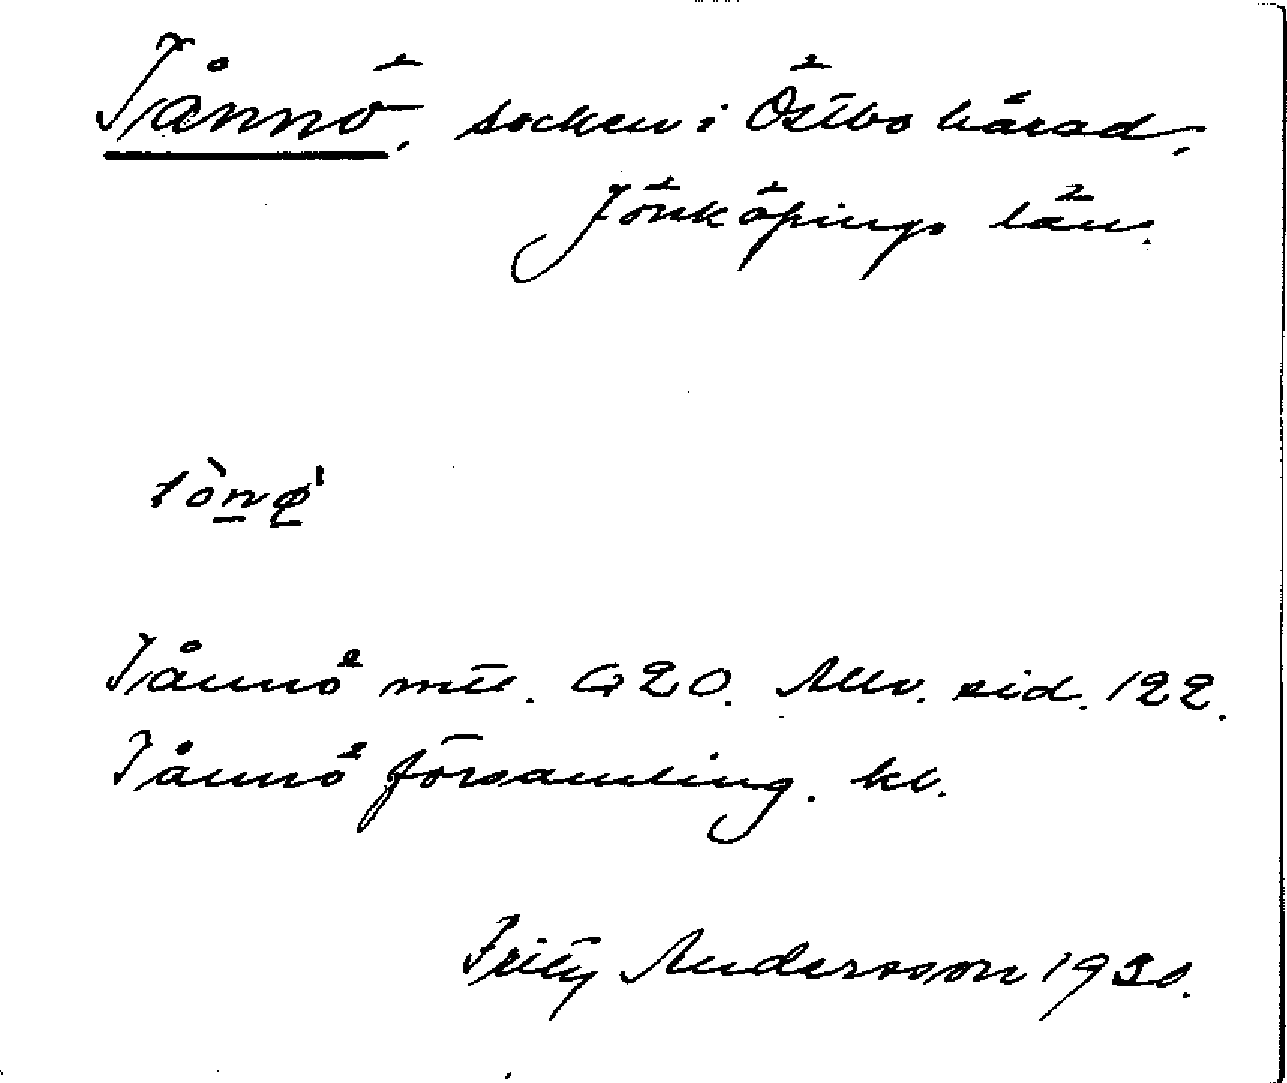 Tånnö, socken i Östbo härad,
Jönköpings län.
Tånnö mtl. G 20. Allv. sid. 122.
Tånnö församling. kb.
Fritz Andersson 1930.